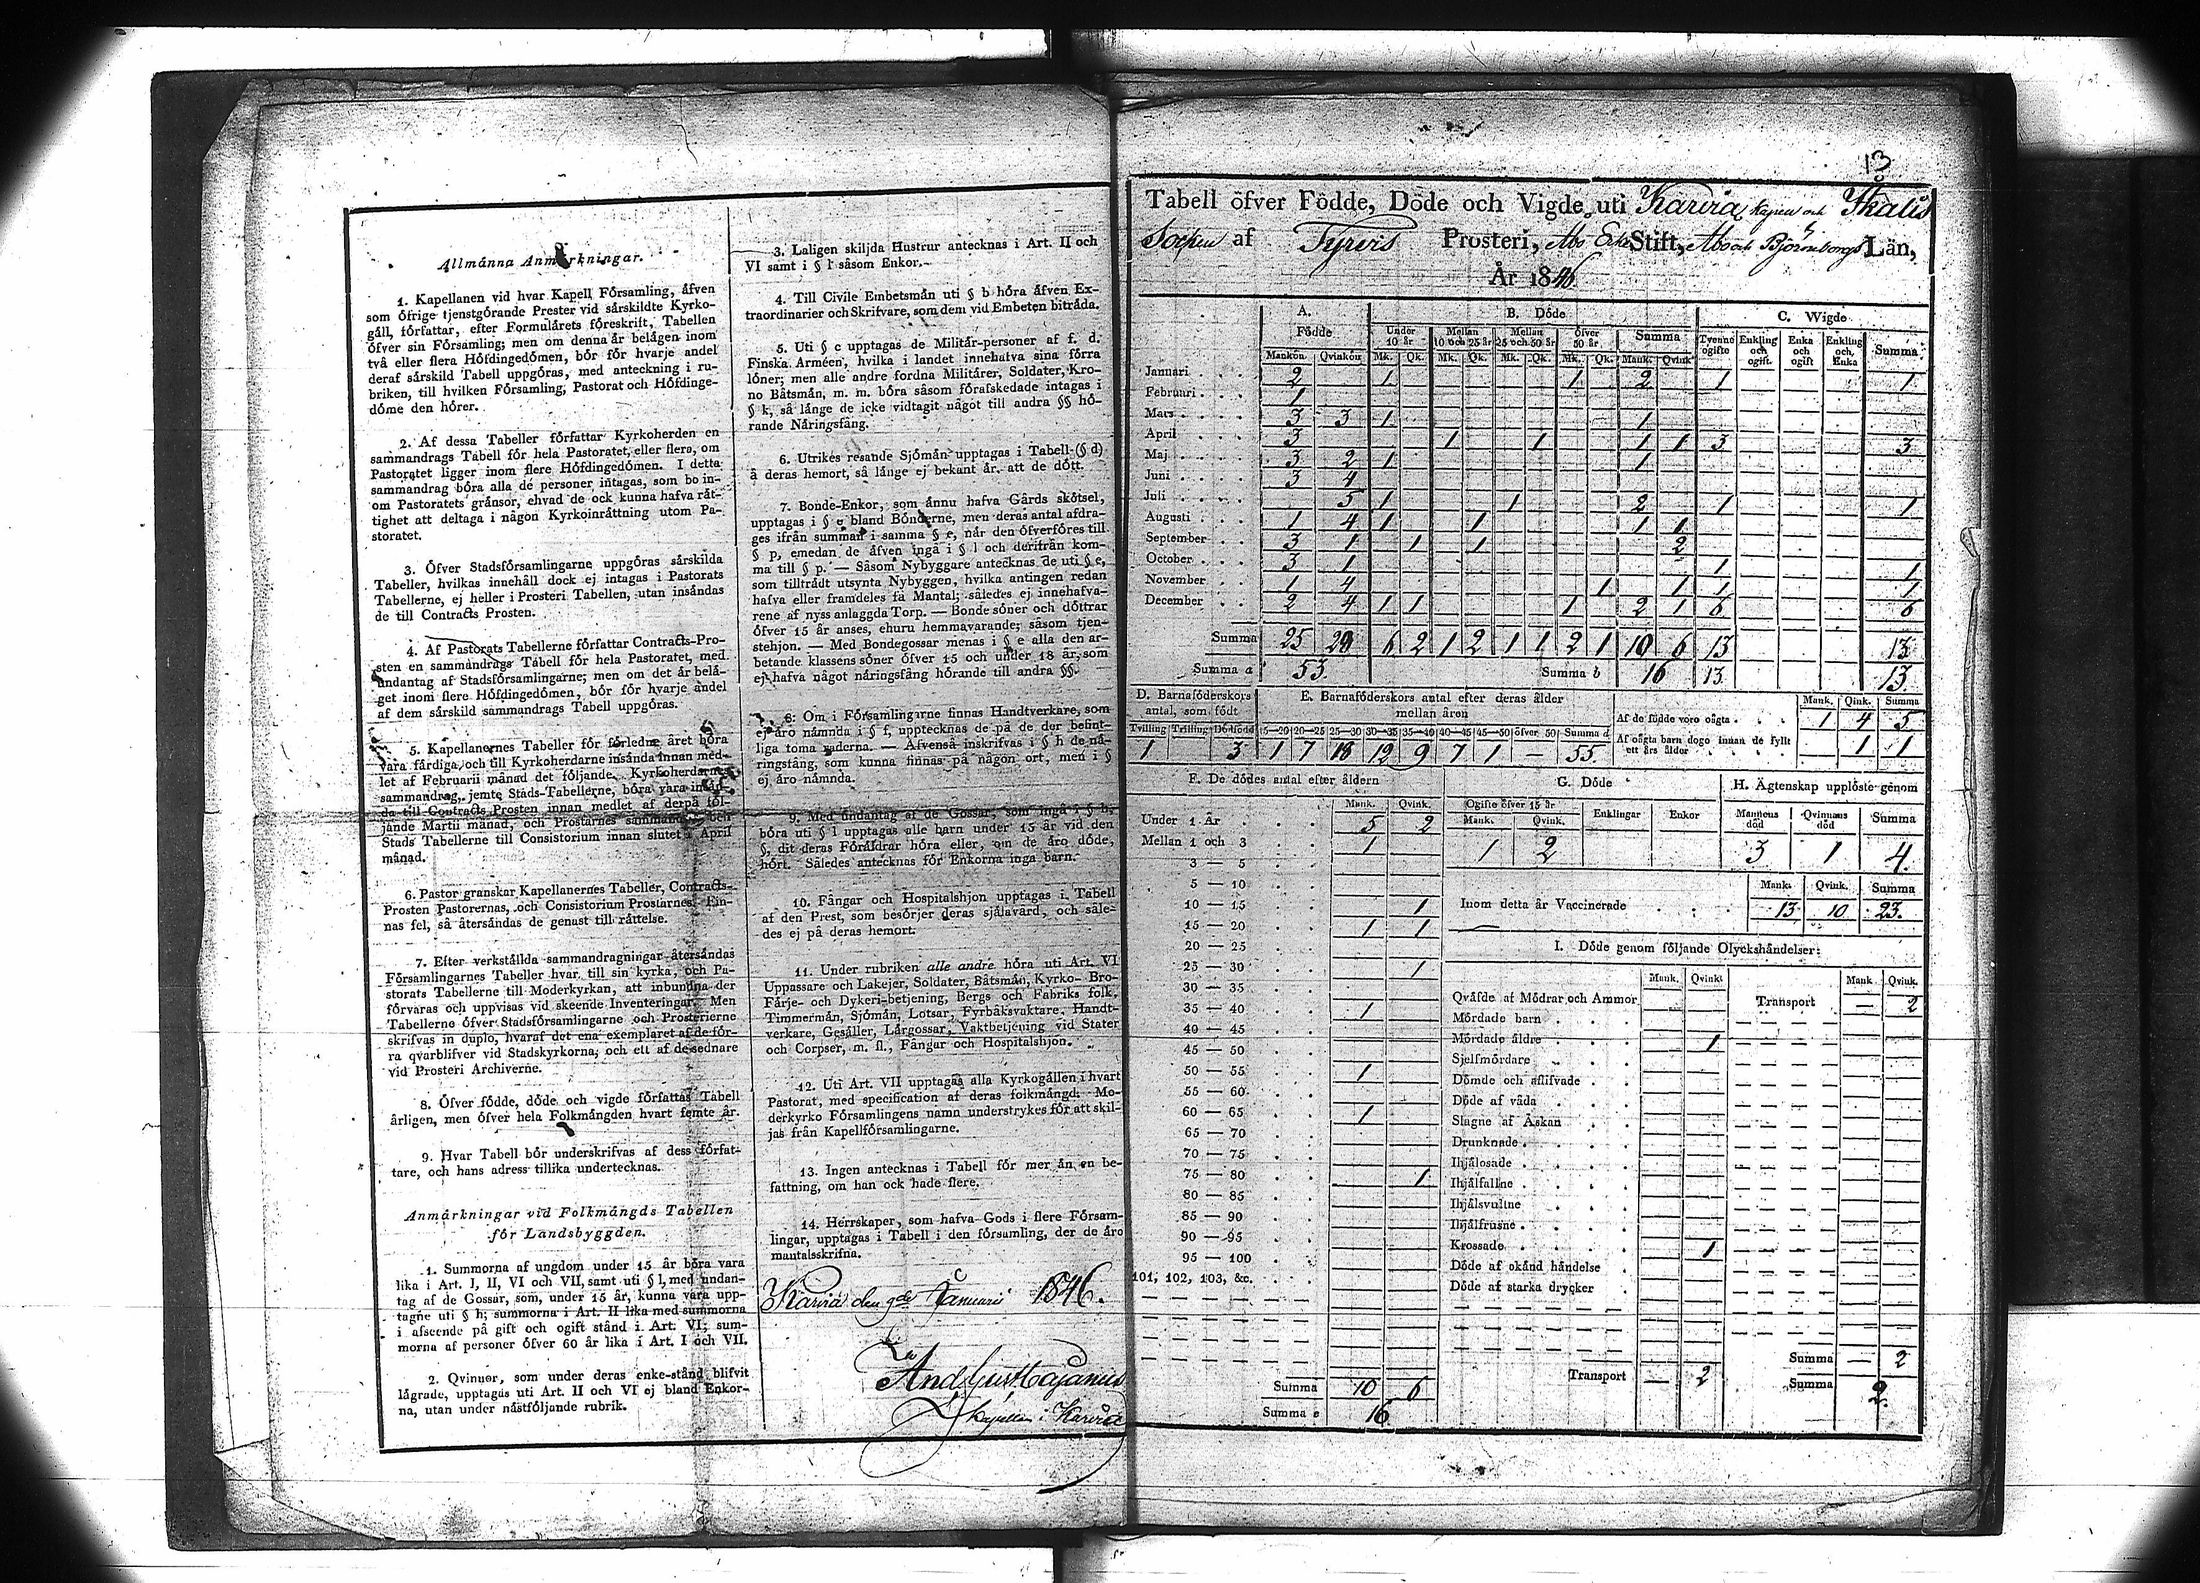 Allmånna Anmårkningar.
1. Kapellanen vid hvar Kapell Fórsamling, åfven
som ófrige tjenstgórande Prester vid sårskildte Kyrko-
gåll, fórfattar, efter Formulårets fóreskrift, Tabellen
ófver sin Fórsamling; men om denna år belågen inom
två eller flera Hófdingedómen, bór fór hvarje andel
deraf sårskild Tabell uppgóras, med anteckning i ru-
briken, till hvilken Fórsamling, Pastorat och Hófdinge-
dóme den hórer.
2. Af dessa Tabeller fórfattar Kyrkoherden en
sammandrags Tabell fór hela Pastoratet, eller flera, om
Pastoratet ligger inom flere Hófdingedómen. I detta
sammandrag bóra alla de personer intagas, som bo in-
om Pastoratets grånsor, ehvad de ock kunna hafva råt-
tighet att deltaga i någon Kyrkoinråttning utom Pa-
storatet.
3. Ófver Stadsfórsamlingarne uppgóras sårskilda
Tabeller, hvilkas innehåll dock ej intagas i Pastorats
Tabellerne, ej heller i Prosteri Tabellen, utan insåndas
de till Contracts Prosten.
4. Af Pastorats Tabellerne fórfattar Contracts-Pro-
sten en sammandrags Tabell fór hela Pastoratet, med
undantag af Stadsfórsamlingarne; men om det år belå-
get inom flere Hófdingedómen, bór fór hvarje andel
af dem sårskild sammandrags Tabell uppgóras.
5. Kapellanernes Tabeller fór fórledne året bóra
vara fårdiga och till Kyrkoherdarne insånda innan med-
let af Februarii månad det fóljande. Kyrkoherdarnes
sammandrag, jemte Stads-Tabellerne, bóra vara insån-
da till Contracts Prosten innan medlet af derpå fól-
jande Martii månad, och Prostarnes sammandrag och
Stads Tabellerne till Consistorium innan slutet af April
månad.
6. Pastor granskar Kapellanernes Tabeller, Contracts-
Prosten Pastorernas, och Consistorium Prostarnes. Fin-
nas fel, så återsåndas de genast till råttelse.
7. Efter verkstållda sammandragningar återsåndas
Fórsamlingarnes Tabeller hvar till sin kyrka, och Pa-
storats Tabellerne till Moderkyrkan, att inbundna der
fórvaras och uppvisas vid skeende Inventeringar. Men
Tabellerne ófver Stadsfórsamlingarne och Prosterierne
skrifvas in duplo, hvaraf det ena exemplaret af de fór-
ra qvarblifver vid Stadskyrkorna, och ett af de sednare
vid Prosteri Archiverne.
8. Ófver fódde, dóde och vigde fórfattas Tabell
årligen, men ófver hela Folkmångden hvart femte år.
9. Hvar Tabell bór underskrifvas af dess fórfat-
tare, och hans adress tillika undertecknas.
Anmårkningar vid Folkmångds Tabellen
fór Landsbyggden.
1. Summorna af ungdom under 15 år bóra vara
lika i Art. I, II, VI och VII, samt uti § l, med undan-
tag af de Gossar, som, under 15 år, kunna vara upp-
tagne uti § h; summorna i Art. II lika med summorna
i afseende på gift och ogift stånd i Art. VI; sum-
morna af personer ófver 60 år lika i Art. I och VII.
2. Qvinuor, som under deras enke-stånd blifvit
lågrade, upptagas uti Art. II och VI ej bland Enkor-
na, utan under nåstfóljande rubrik.
3. Laligen skiljda Hustrur antecknas i Art. II och
VI samt i § l såsom Enkor.
4. Till Civile Embetsmån uti § b hóra åfven Ex-
traordinarier och Skrifvare, som dem vid Embeten bitråda.
5. Uti § c upptagas de Militår-personer af f. d.
Finska Arméen, hvilka i landet innehafva sina fórra
lóner; men alle andre fordna Militårer, Soldater, Kro-
no Båtsmån, m. m. bóra såsom fórafskedade intagas i
§ k, så långe de icke vidtagit något till andra §§ hó-
rande Nåringsfång.
6. Utrikes resande Sjómån upptagas i Tabell (§ d)
å deras hemort, så långe ej bekant år, att de dótt.
7. Bonde-Enkor, som ånnu hafva Gårds skótsel,
upptagas i § e bland Bónderne, men deras antal afdra-
ges ifrån summan i samma § e, når den ófverfóres till
§ p, emedan de åfven ingå i § l och derifrån kom-
ma till § p. — Såsom Nybyggare antecknas de uti § e,
som tilltrådt utsynta Nybyggen, hvilka antingen redan
hafva eller framdeles få Mantal; således ej innehafva-
rene af nyss anlaggda Torp. — Bonde sóner och dóttrar
ófver 15 år anses, ehuru hemmavarande, såsom tjen-
stehjon. — Med Bondegossar menas i § e alla den ar-
betande klassens sóner ófver 15 och under 18 år, som
ej hafva något nåringsfång hórande till andra §§.
8. Om i Fórsamlingarne finnas Handtverkare, som
ej åro nåmnda i § f, upptecknas de på de der befint-
liga toma raderna. — Åfvenså inskrifvas i § h de nå-
ringsfång, som kunna finnas på någon ort, men i §
ej åro nåmnda.
9. Med undantag af de Gossar, som ingå i § h,
bóra uti § l upptagas alle barn under 15 år vid den
§, dit deras Fóråldrar hóra eller, om de åro dóde,
hórt. Således antecknas fór Enkorna inga barn.
10. Fångar och Hospitalshjon upptagas i Tabell
af den Prest, som besórjer deras sjålavård, och såle-
des ej på deras hemort.
11. Under rubriken alle andre hóra uti Art. VI
Uppassare och Lakejer, Soldater, Båtsmån, Kyrko- Bro-
Fårje- och Dykeri-betjening, Bergs och Fabriks folk,
Timmermån, Sjómån, Lotsar, Fyrbåksvaktare, Handt-
verkare, Gesåller, Lårgossar, Vaktbetjening vid Stater
och Corpser, m. fl., Fångar och Hospitalshjon.
12. Uti Art. VII upptagas alla Kyrkogållen i hvart
Pastorat, med specification af deras folkmångd. Mo-
derkyrko Fórsamlingens namn understrykes fór att skil-
jas från Kapellfórsamlingarne.
13. Ingen antecknas i Tabell fór mer ån en be-
fattning, om han ock hade flere.
14. Herrskaper, som hafva Gods i flere Fórsam-
lingar, upptagas i Tabell i den fórsamling, der de åro
mantalsskrifna.
Karvia den 9de Januari 1846.
And Gust Cajanus
kapellan i Karvia
13
Tabell öfver Födde, Döde och Vigde uti Karvia kapell och Ikalis
Socken af Tyrvis Prosteri, Åbo Erke Stift, Åbo och Björneborgs Län,
År 1846
A. B. Döde C. Wigde
Födde Under 10 år Mellan 10 och 25 år Mellan 25 och 50 år Öfver 50 år Summa Tvenne ogifte Enkling och ogift Enka och ogift Enkling och Enka Summa
Mankön Qvinkön Mk. Qk. Mk. Qk. Mk. Qk. Mk. Qk. Mank. Qvink
Januari 2 1 1 2 1 1
Februari 1
Mars 3 3 1 1
April 3 1 1 1 1 3 3
Maj 3 2 1 1
Juni 3 4
Juli 5 1 1 2 1 1
Augusti 1 4 1 1 1 1
September 3 1 1 1 2
October 3 1 1 1
November 1 4 1 1 1 1
December 2 4 1 1 1 2 1 6 6
Summa 25 28 6 2 1 2 1 1 2 1 10 6 13 13
Summa a 53. Summa b 16 13 13.
D. Barnaföderskors antal, som födt
E. Barnaföderskors antal efter deras ålder mellan åren
Mank. Qink. Summa
Af de födde voro oägta 1 4 5
Af oägta barn dogo innan de fyllt
ett års ålder 1 1
Tvilling Trilling Dödfödd 15—20 20—25 25—30 30—35 35—40 40—45 45—50 öfver 50 Summa d
1 3 1 7 18 12 9 7 1 — 55.
F. De dödes antal efter åldern
Mank. Qvink.
Under 1 År 5 2
Mellan 1 och 3 1
3 — 5
5 — 10
10 — 15 1
15 — 20 1 1
20 — 25
25 — 30 1
30 — 35
35 — 40 1
40 — 45
45 — 50
50 — 55 1
55 — 60
60 — 65 1
65 — 70
70 — 75
75 — 80 1
80 — 85
85 — 90
90 — 95
95 — 100
101, 102, 103, &c.
Summa 10 6
Summa e 16
G. Döde
Ogifte öfver 15 år Enklingar Enkor
Mank. Qvink.
1 2
H. Ägtenskap upplöste genom
Mannens död Qvinnans död Summa
3 1 4.
Mank. Qvink. Summa
Inom detta år Vaccinerade 13 10 23.
I. Döde genom följande Olyckshändelser:
Mank. Qvink. Mank. Qvink.
Qväfde af Mödrar och Ammor Transport — 2
Mördade barn
Mördade äldre 1
Sjelfmördare
Dömde och aflifvade
Döde af våda
Slagne af Åskan
Drunknade
Ihjälosade
Ihjälfallne
Ihjälsvultne
Ihjälfrusne
Krossade 1
Döde af okänd händelse
Döde af starka drycker
Summa — 2
Transport — 2 Summa 2.